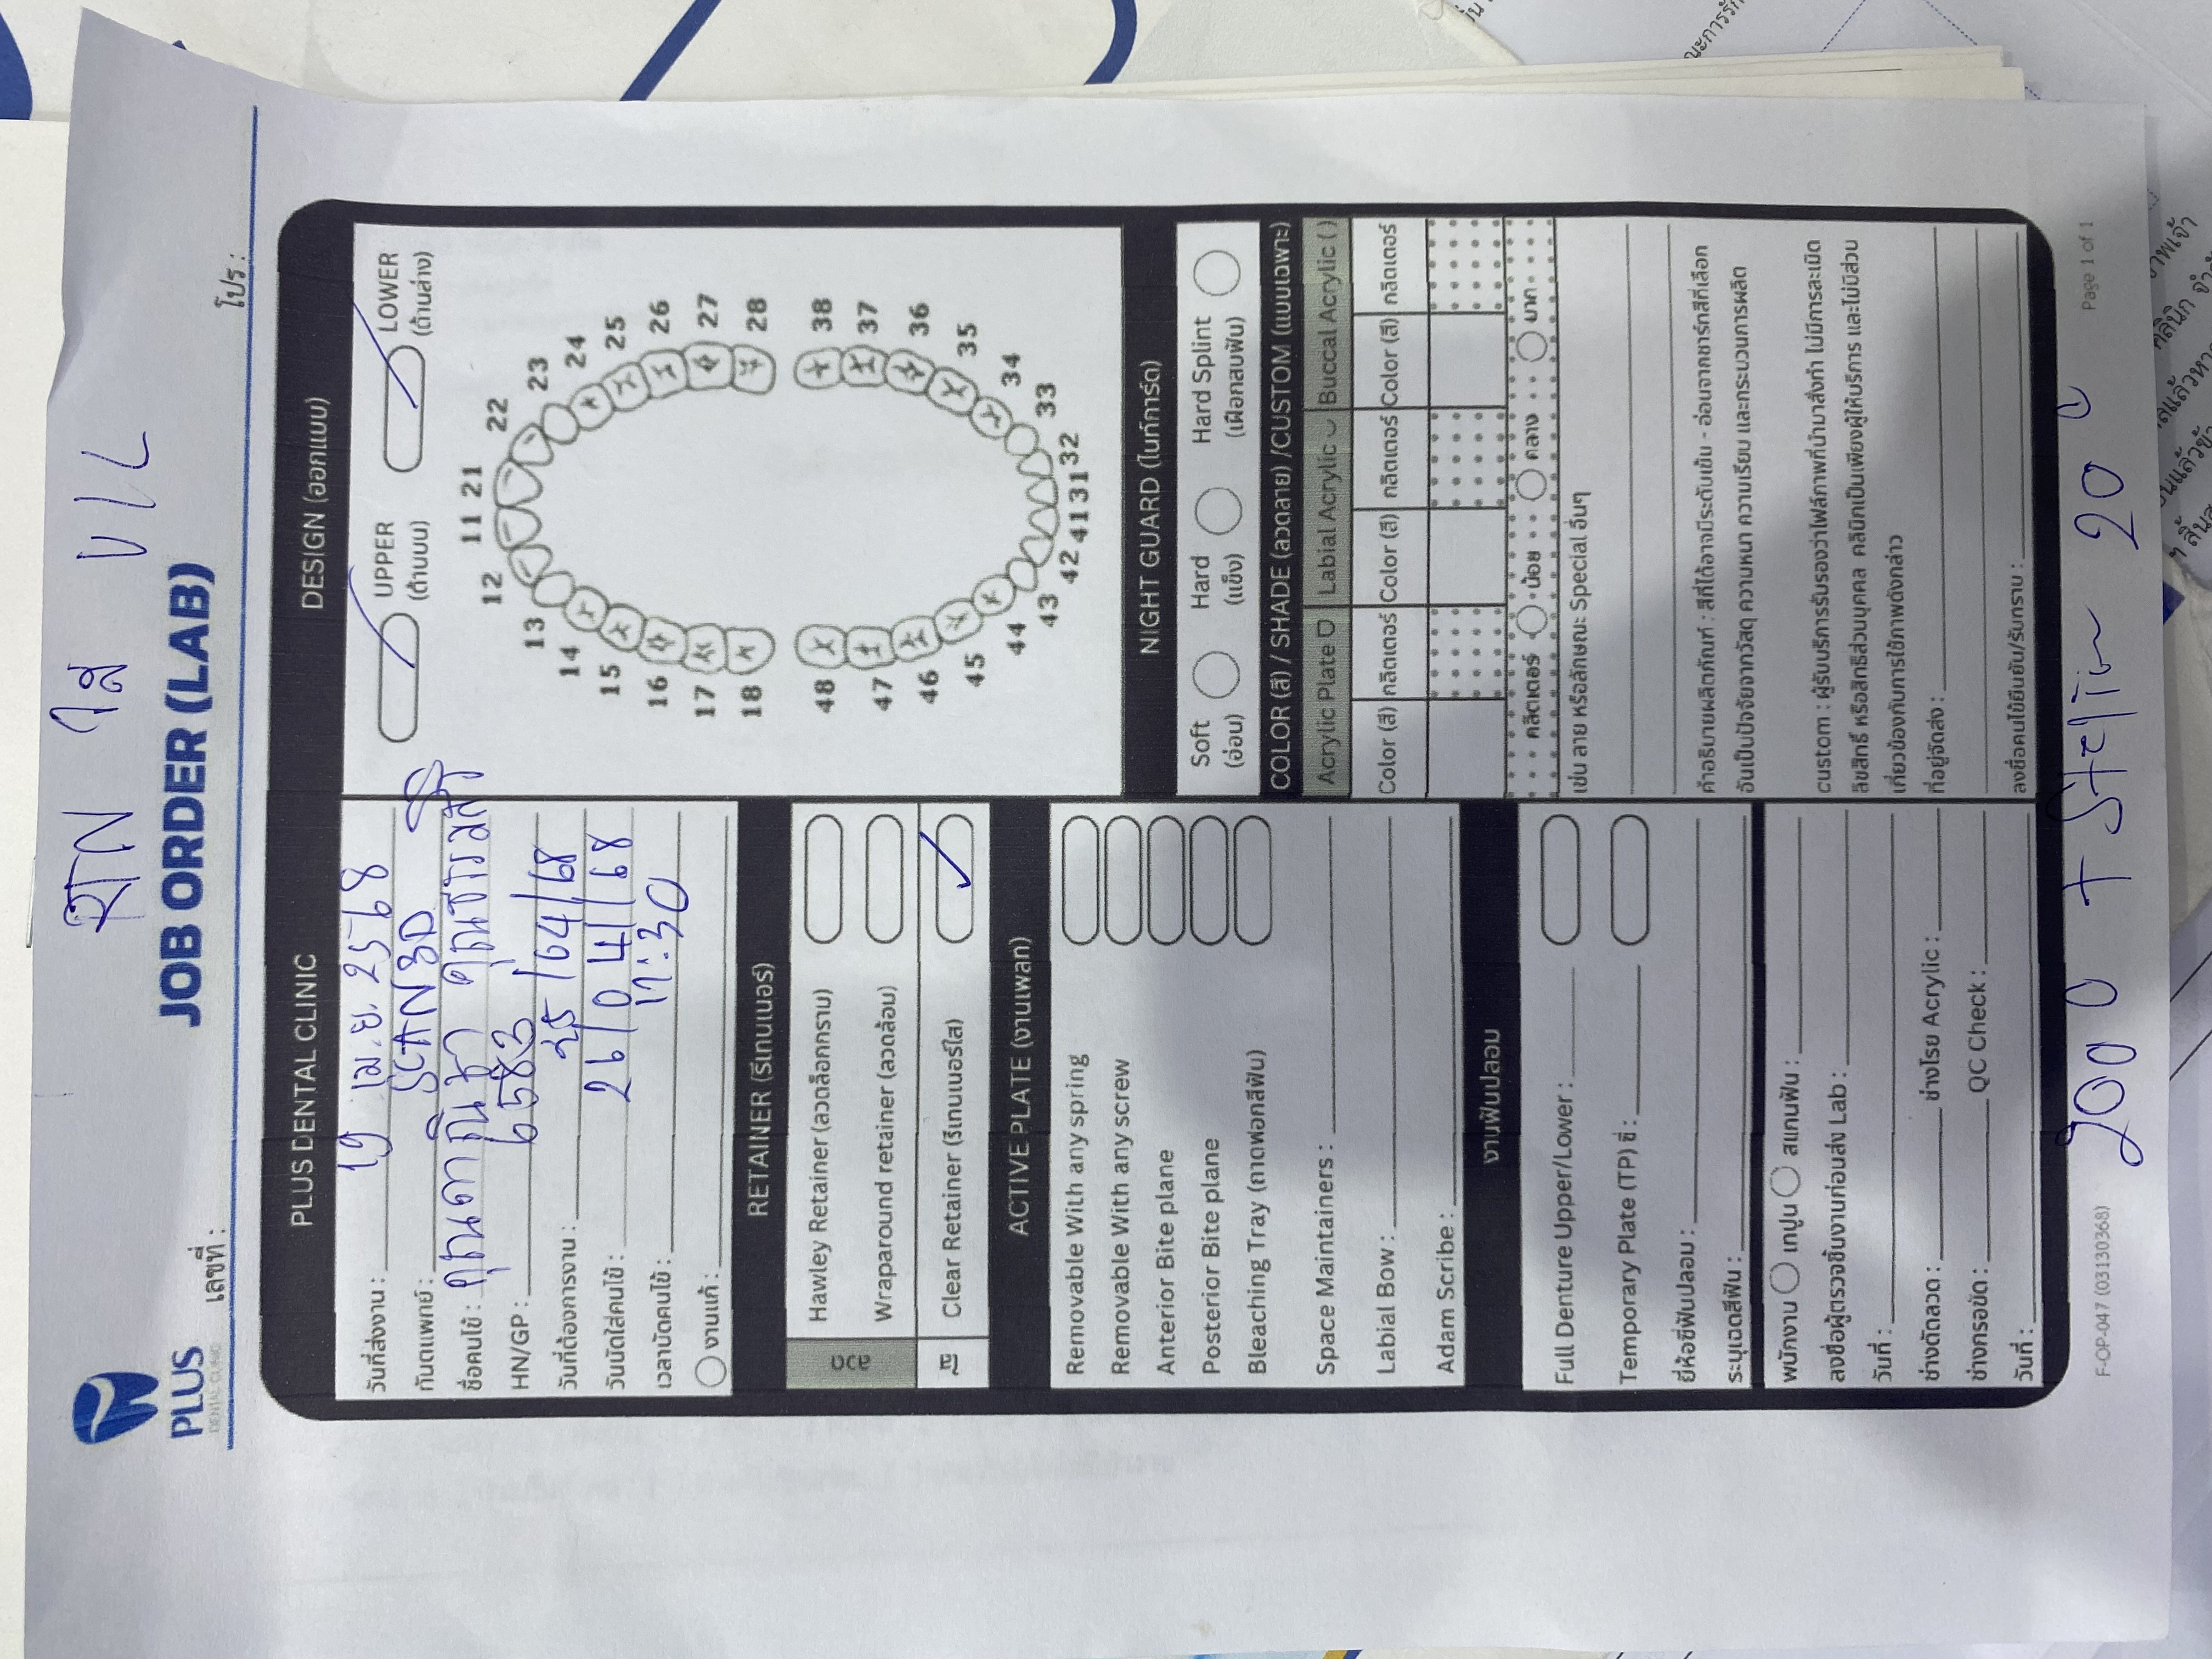 RTN ใส U/L
PLUS
DENTAL CLINIC
JOB ORDER (LAB)
เลขที่ :
โปร :
PLUS DENTAL CLINIC
วันที่ส่งงาน : 19 เม.ย. 2568
ทันตแพทย์ : SCAN3D
ชื่อคนไข้ : คุณดาณิชา คุณธรรมสิริ
HN/GP : 6583
วันที่ต้องการงาน : 25/04/68
วันนัดใส่คนไข้ : 26/04/68
เวลานัดคนไข้ : 17:30
งานแก้ :
RETAINER (รีเทนเนอร์)
ลวด
Hawley Retainer (ลวดล็อกกราม)
Wraparound retainer (ลวดล้อม)
ใส
Clear Retainer (รีเทนเนอร์ใส)
ACTIVE PLATE (งานเพลท)
Removable With any spring
Removable With any screw
Anterior Bite plane
Posterior Bite plane
Bleaching Tray (ถาดฟอกสีฟัน)
Space Maintainers :
Labial Bow :
Adam Scribe :
งานฟันปลอม
Full Denture Upper/Lower :
Temporary Plate (TP) ซี่ :
ยี่ห้อซี่ฟันปลอม :
ระบุเฉดสีฟัน :
พนักงาน เทปูน สแกนฟัน :
ลงชื่อผู้ตรวจชิ้นงานก่อนส่ง Lab :
วันที่ :
ช่างดัดลวด : ช่างโรย Acrylic :
ช่างกรอขัด : QC Check :
วันที่ :
DESIGN (ออกแบบ)
UPPER (ด้านบน) LOWER (ด้านล่าง)
11 21
12 22
13 23
14 24
15 25
16 26
17 27
18 28
48 38
47 37
46 36
45 35
44 34
43 33
42 41 31 32
NIGHT GUARD (ไนท์การ์ด)
Soft (อ่อน) Hard (แข็ง) Hard Splint (เฝือกสบฟัน)
COLOR (สี) / SHADE (ลวดลาย) /CUSTOM (แบบเฉพาะ)
Acrylic Plate Labial Acrylic Buccal Acrylic ( )
Color (สี) กลิตเตอร์ Color (สี) กลิตเตอร์ Color (สี) กลิตเตอร์
กลิตเตอร์ น้อย กลาง มาก
เช่น ลาย หรือลักษณะ Special อื่นๆ
คำอธิบายผลิตภัณฑ์ : สีที่ได้อาจมีระดับเข้ม - อ่อนจากชาร์ทสีที่เลือก
อันเป็นปัจจัยจากวัสดุ ความหนา ความเรียบ และกระบวนการผลิต
custom : ผู้รับบริการรับรองว่าไฟล์ภาพที่นำมาสั่งทำ ไม่มีการละเมิด
ลิขสิทธิ์ หรือสิทธิส่วนบุคคล คลินิกเป็นเพียงผู้ให้บริการ และไม่มีส่วน
เกี่ยวข้องกับการใช้ภาพดังกล่าว
ที่อยู่จัดส่ง :
ลงชื่อคนไข้ยืนยัน/รับทราบ :
F-OP-047 (03130368)
2000 + 200
Page 1 of 1